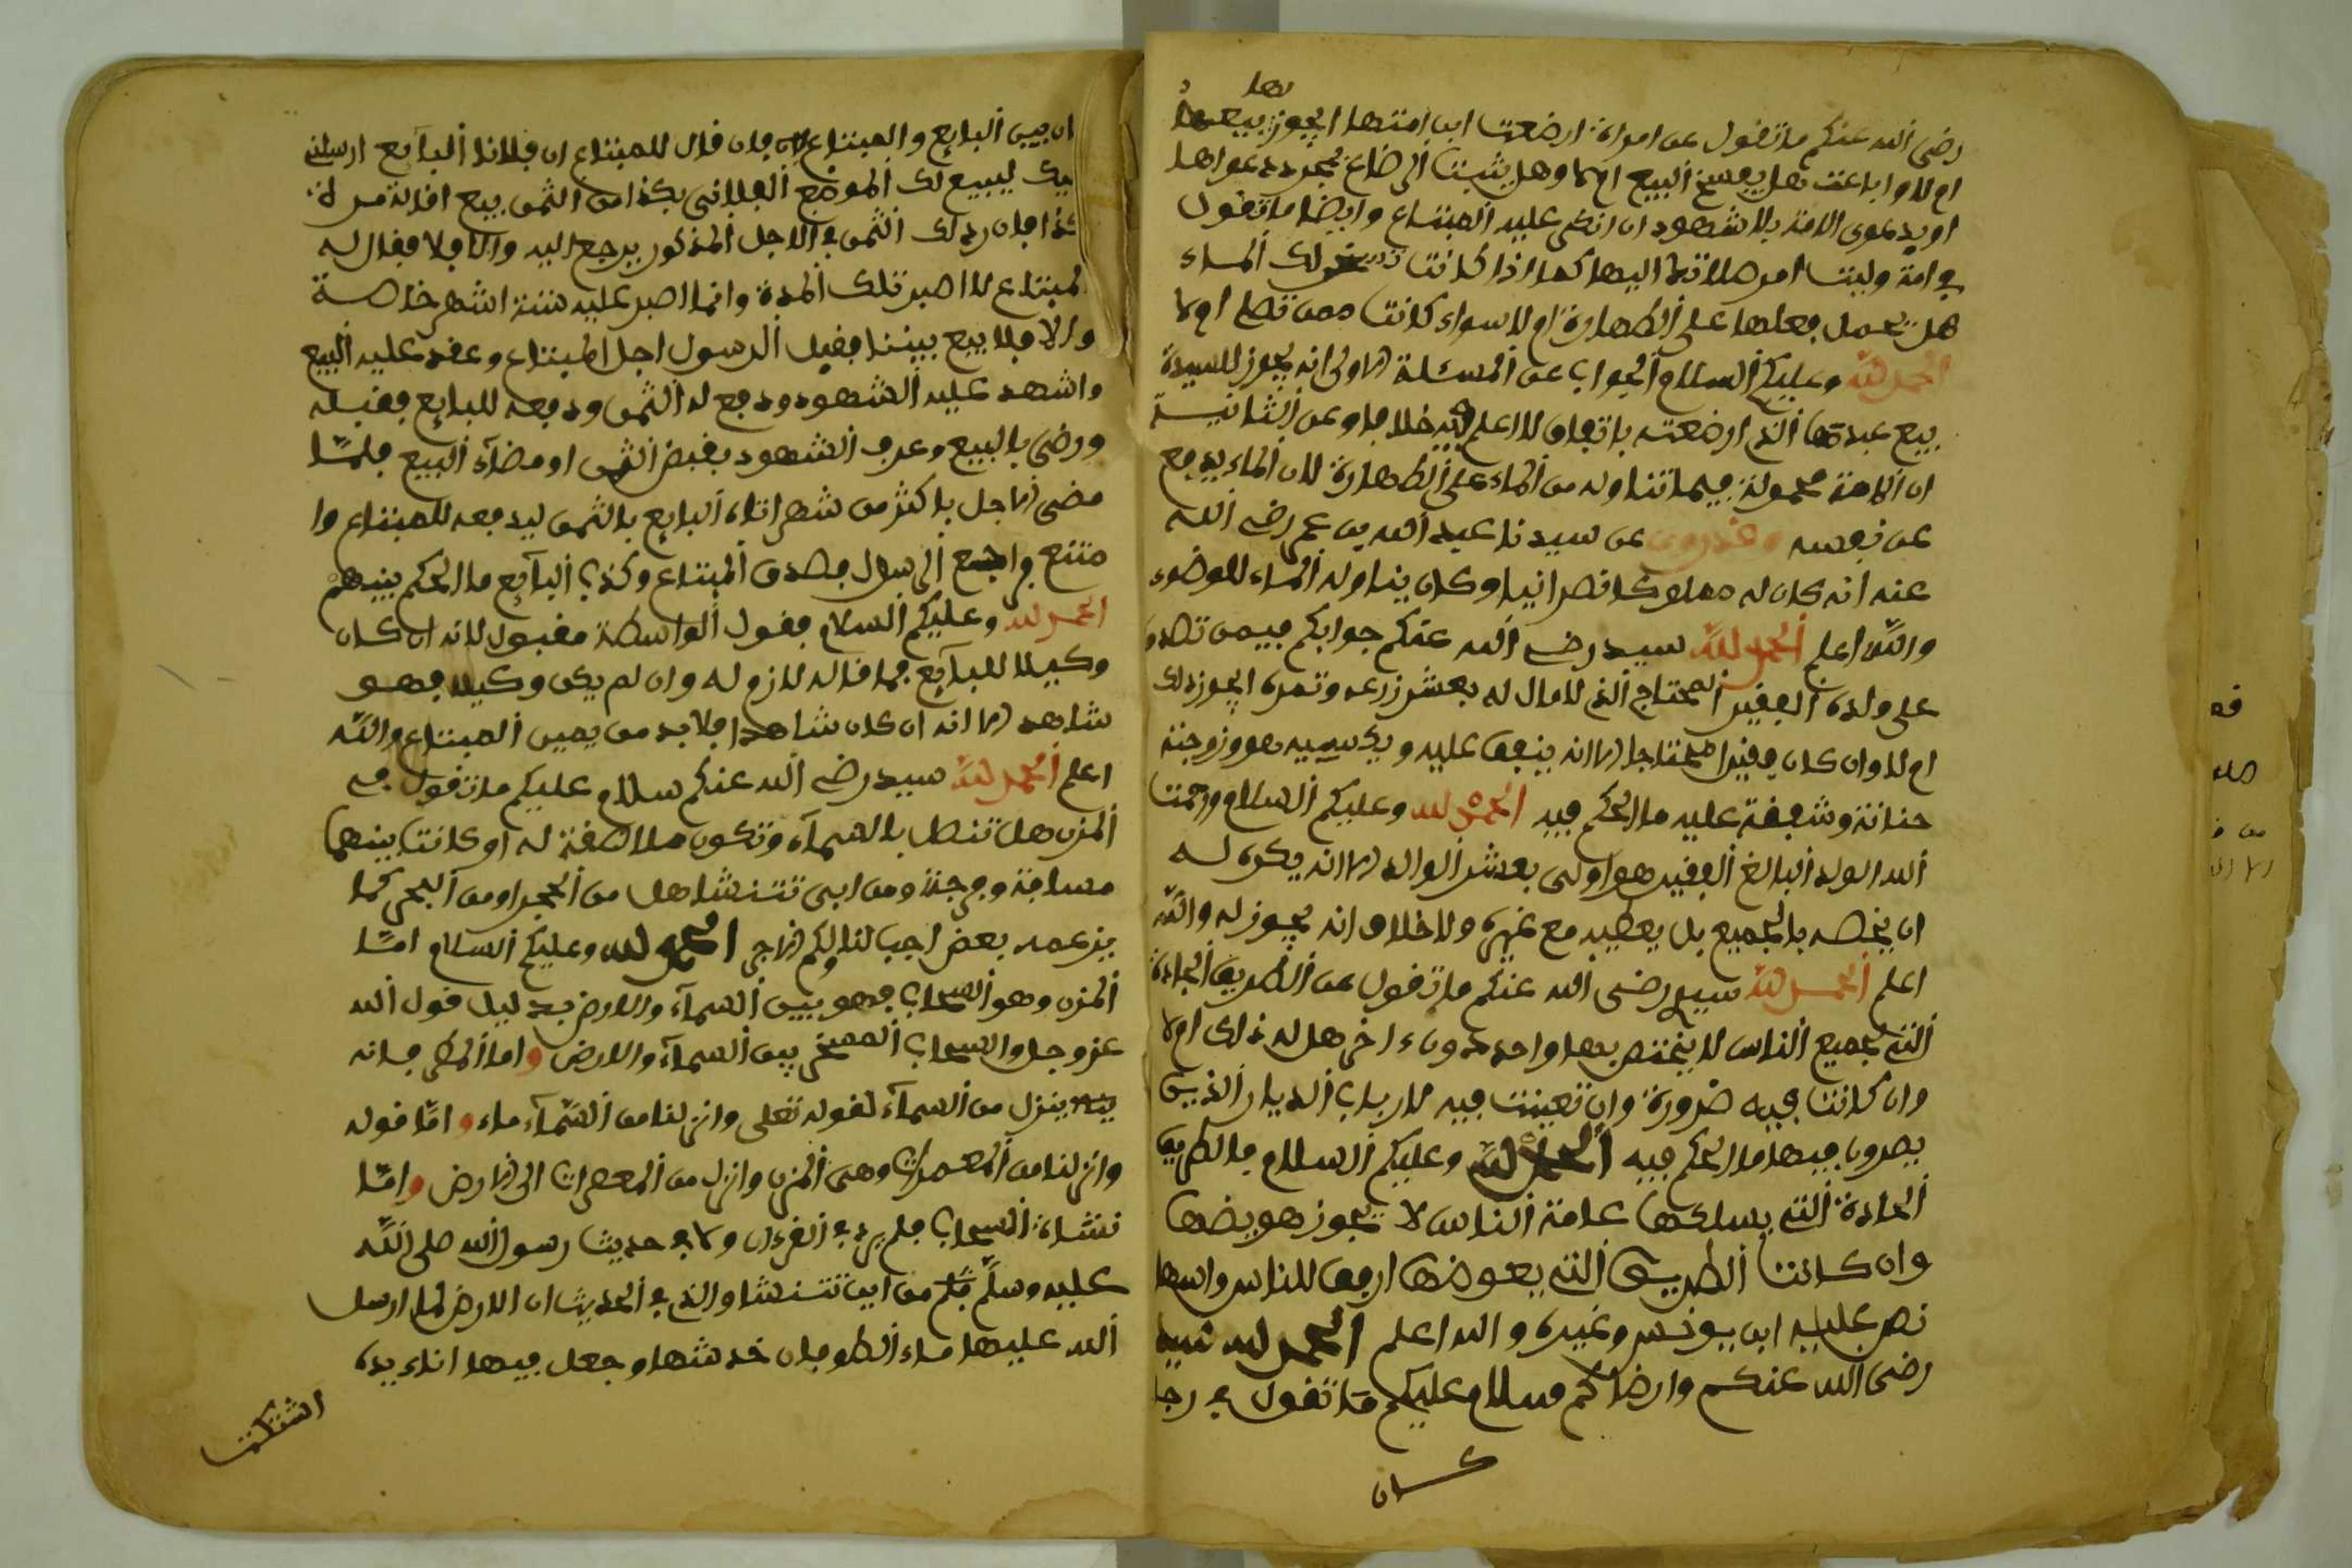 رضي الله عنكم ما تقول عن امراة ارضعت ابن امتها ايجوز لها بيعها
ام لا وان باعت هل يفسخ البيع ام لا وهل يثبت الرضاع بمجرد دعواها
او بدعوى الامة بلا شهود ان انكر عليه المبتاع وايضا ما تقول
في امة وليت امر صلاتها اليها كما اذا كانت لك الماء
هل يحمل فعلها على الطهارة ام لا سواء كانت ممن تصلي ام لا
الحمد لله وعليكم السلام الجواب عن المسئلة الاولى انه يجوز للسيدة
بيع عبدتها الذي ارضعته باتفاق لا اعلم فيه خلافا وعن الثانية
ان الامة محمولة فيما تناوله من الماء على الطهارة لان الماء يدفع
عن نفسه وقد روي عن سيدنا عبد الله بن عمر رضي الله
عنه انه كان له مملوكا نصرانيا وكان يناوله الماء للوضوء
والله اعلم الحمد لله سيد رضي الله عنكم جوابكم فيمن تصدق
على ولده الفقير المحتاج الذي لا مال له بعشر زرعه وتمره ايجوز ذلك
ام لا وان كان فقيرا محتاجا الا انه ينفق عليه ويكسيه هو وزوجته
حنانة وشفقة عليه ما الحكم فيه الحمد لله وعليكم السلام ورحمت
الله الولد البالغ الفقير هو اولى بعشر الوالد الا انه يكره له
ان يخصه بالجميع بل يعطيه مع غيره ولا خلاف انه يجوز له والله
اعلم الحمد لله سيد رضي الله عنكم ما تقول عن الطريق الجادة
التي لجميع الناس لا يختص بها واحد دون ءاخر هل له ذلك ام لا
وان كانت فيه ضرورة وان تعينت فيه لارباب الديار الذين
يمرون فيها ما الحكم فيه الحمد لله وعليكم السلام فالطريق
الجادة التي يسلكها عامة الناس لا يجوز هويضها
وان كانت الطريق التي يعوضها ارفق للناس واسهل
نص عليه ابن يونس وغيره والله اعلم الحمد لله سيد
رضي الله عنكم وارضاكم وسلام عليكم ما تقول في رجل
كان
ان بين البايع والمبتاع فان قال للمبتاع ان فلانا البايع ارسلني
ليك ليبيع لك الموضع الفلاني بكذا من الثمن بيع اقالة من لدن
كذا فان رد لك الثمن في الاجل المذكور يرجع اليه والا فلا فقال له
المبتاع لا اصبر تلك المدة وانما اصبر عليه ستة اشهر خاصة
والا فلا بيع بيننا فقبل الرسول اجل المبتاع وعقد عليه البيع
واشهد عليه الشهود ودفع له الثمن ودفعه للبايع فقبله
ورضي بالبيع وعرف الشهود بقبض الثمن او مضاء البيع فلما
مضى الاجل باكثر من شهر اتاه البايع بالثمن ليدفعه للمبتاع وا
متنع وراجع الرسول فصدق المبتاع وكذب البايع ما الحكم بينهم
الحمد لله وعليكم السلام فقول الواسطة مقبول لانه ان كان
وكيلا للبايع فما قاله لازم له وان لم يكن وكيلا فهو
شاهد الا انه ان كان شاهدا فلا بد من يمين المبتاع والله
اعلم الحمد لله سيد رضي الله عنكم سلام عليكم ما تقول في
المزن هل تتصل بالسماء وتكون ملاصقة له او كانت بينهما
مسافة وفرجة ومن اين تنشا هل من الحجر او من البحر كما
يزعمه بعض اجب لنا ولكم الاجر الحمد لله وعليكم السلام اما
المزن وهو السحاب فهو بين السماء والارض بدليل قول الله
عز وجل والسحاب المسخر بين السماء والارض واما المطر فانه
ينزل من السماء لقوله تعلى وانزلنا من السماء ماء واما قوله
وانزلنا من المعصرات وهي المزن وانزل من المعصرات الى الارض واما
نشاة السحاب فلم يرد في القرءان ولا في حديث رسول الله صلى الله
عليه وسلم فلم من اين تنشا والذي في الحديث ان الارض لما ارسل
الله عليها ماء الطوفان خدشها وجعل فيها اناء يده
اشتكت